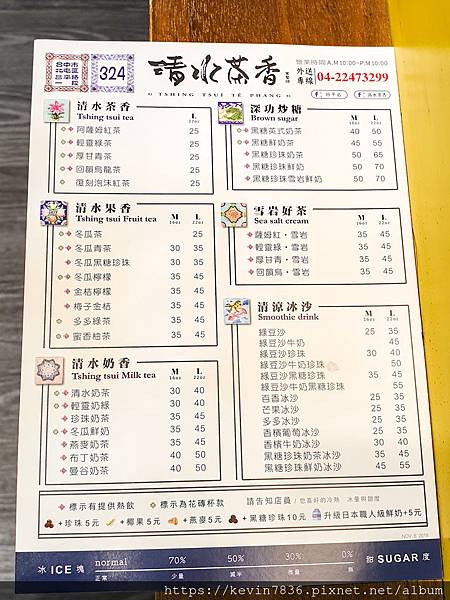 台中市
北屯區
昌平路
一段
324
清水茶香
TSHING TSUI TÊ PHANG
營業時間A.M10:00~P.M10:00
外送專線 04-22473299
清水茶香
Tshing tsui tea
L
22oz
阿薩姆紅茶 25
輕靈綠茶 25
厚甘青茶 25
回韻烏龍茶 25
復刻泡沫紅茶 25
清水果香
Tshing tsui Fruit tea
M
16oz
L
22oz
冬瓜茶 25
冬瓜青茶 30 35
冬瓜黑糖珍珠 30 35
冬瓜檸檬 35 45
金桔檸檬 35 45
梅子金桔 35 45
多多綠茶 35 45
蜜香柚茶 35 45
清水奶香
Tshing tsui Milk tea
M
16oz
L
22oz
清水奶茶 30 40
輕靈奶綠 30 40
珍珠奶茶 35 45
冬瓜鮮奶 35 45
燕麥奶茶 35 45
布丁奶茶 40 50
曼谷奶茶 40 50
深功炒糖
Brown sugar
M
16oz
L
22oz
黑糖英式奶茶 40 50
黑糖鮮奶茶 45 55
黑糖珍珠奶茶 50 65
黑糖珍珠鮮奶 50 70
黑糖珍珠雪岩鮮奶 50 70
雪岩好茶
Sea salt cream
M
16oz
L
22oz
薩姆紅・雪岩 35 45
輕靈綠・雪岩 35 45
厚甘青・雪岩 35 45
回韻烏・雪岩 35 45
清涼冰沙
Smoothie drink
M
16oz
L
22oz
綠豆沙 25 35
綠豆沙牛奶 45
綠豆沙珍珠 30 40
綠豆沙牛奶珍珠 50
綠豆沙黑糖珍珠 35 45
綠豆沙牛奶黑糖珍珠 55
百香冰沙 25 35
芒果冰沙 25 35
多多冰沙 25 35
香檳葡萄冰沙 25 35
香檳牛奶冰沙 30 40
黑糖珍珠奶茶冰沙 35 45
黑糖珍珠鮮奶冰沙 45 55
標示有提供熱飲
標示為花磚杯款
請告知店員 / 您喜好的冷熱 冰量與甜度
+珍珠5元
+椰果5元
+燕麥5元
+黑糖珍珠10元
升級日本職人級鮮奶+5元
NOV. 8. 2018
冰 ICE 塊
normal 70% 50% 30% 0%
正常 少量 減半 微量 無
甜 SUGAR 度
https://kevin7836.pixnet.net/album